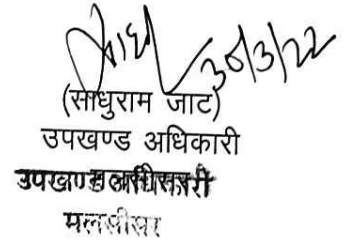 30/3/22
(साधुराम जाट)
उपखण्ड अधिकारी
उपखण्ड अधिकारी
मलसीसर